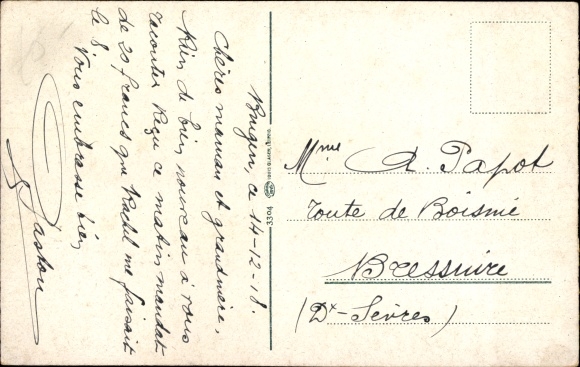 Bruges, ce 14-12-18.
Chères maman et grandmère,
Rien de bien nouveau à vous
raconter. Reçu ce matin mandat
de 20 francs que Rachel me faisait
le 8.
Vous embrasse bien
Gaston
3304
Mme A. Papot
route de Boismé
Bressuire
(Dx-Sèvres)